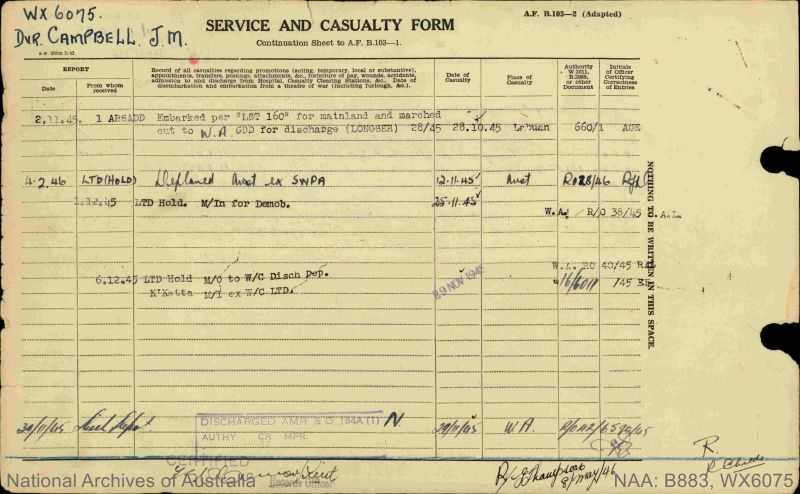 WX6075.
Dvr. CAMPBELL. J.M.
SERVICE AND CASUALTY FORM
Continuation Sheet to A.F. B.103—1.
A.F. B.103—2 (Adapted)
REPORT
Date
From whom received
Record of all casualties regarding promotions (acting, temporary, local or substantive), appointments, transfers, postings, attachments, &c., forfeiture of pay, wounds, accidents, admission to and discharge from Hospital, Casualty Clearing Stations, &c., Date of disembarkation and embarkation from a theatre of war (including furlough, &c.).
Date of Casualty
Place of Casualty
Authority W.3011, B.2069, or other Document
Initials of Officer Certifying Correctness of Entries
2.11.45. 1 ABSADD Embarked per "LST 160" for mainland and marched
out to W.A. GDD for discharge (LONGSER) 28/45 28.10.45 Labuan 660/1 AGE
4.2.46 LTD (HOLD) Deplaned Aust ex SWPA 12.11.45 Aust R028/46
12.45 LTD Hold. M/In for Demob. 25.11.45
W.A. R/O 38/45
6.12.45 LTD Hold M/O to W/C Disch Dep. W.A. RO 40/45
K'Katta M/I ex W/C LTD. /45
29 NOV 1945
NOTHING TO BE WRITTEN IN THIS SPACE.
30/11/45 DISCHARGED AMR & O 184A (1) N. 29/11/45 W.A.
AUTHY CR MPR.
CERTIFIED
Records Officer
National Archives of Australia
NAA: B883, WX6075